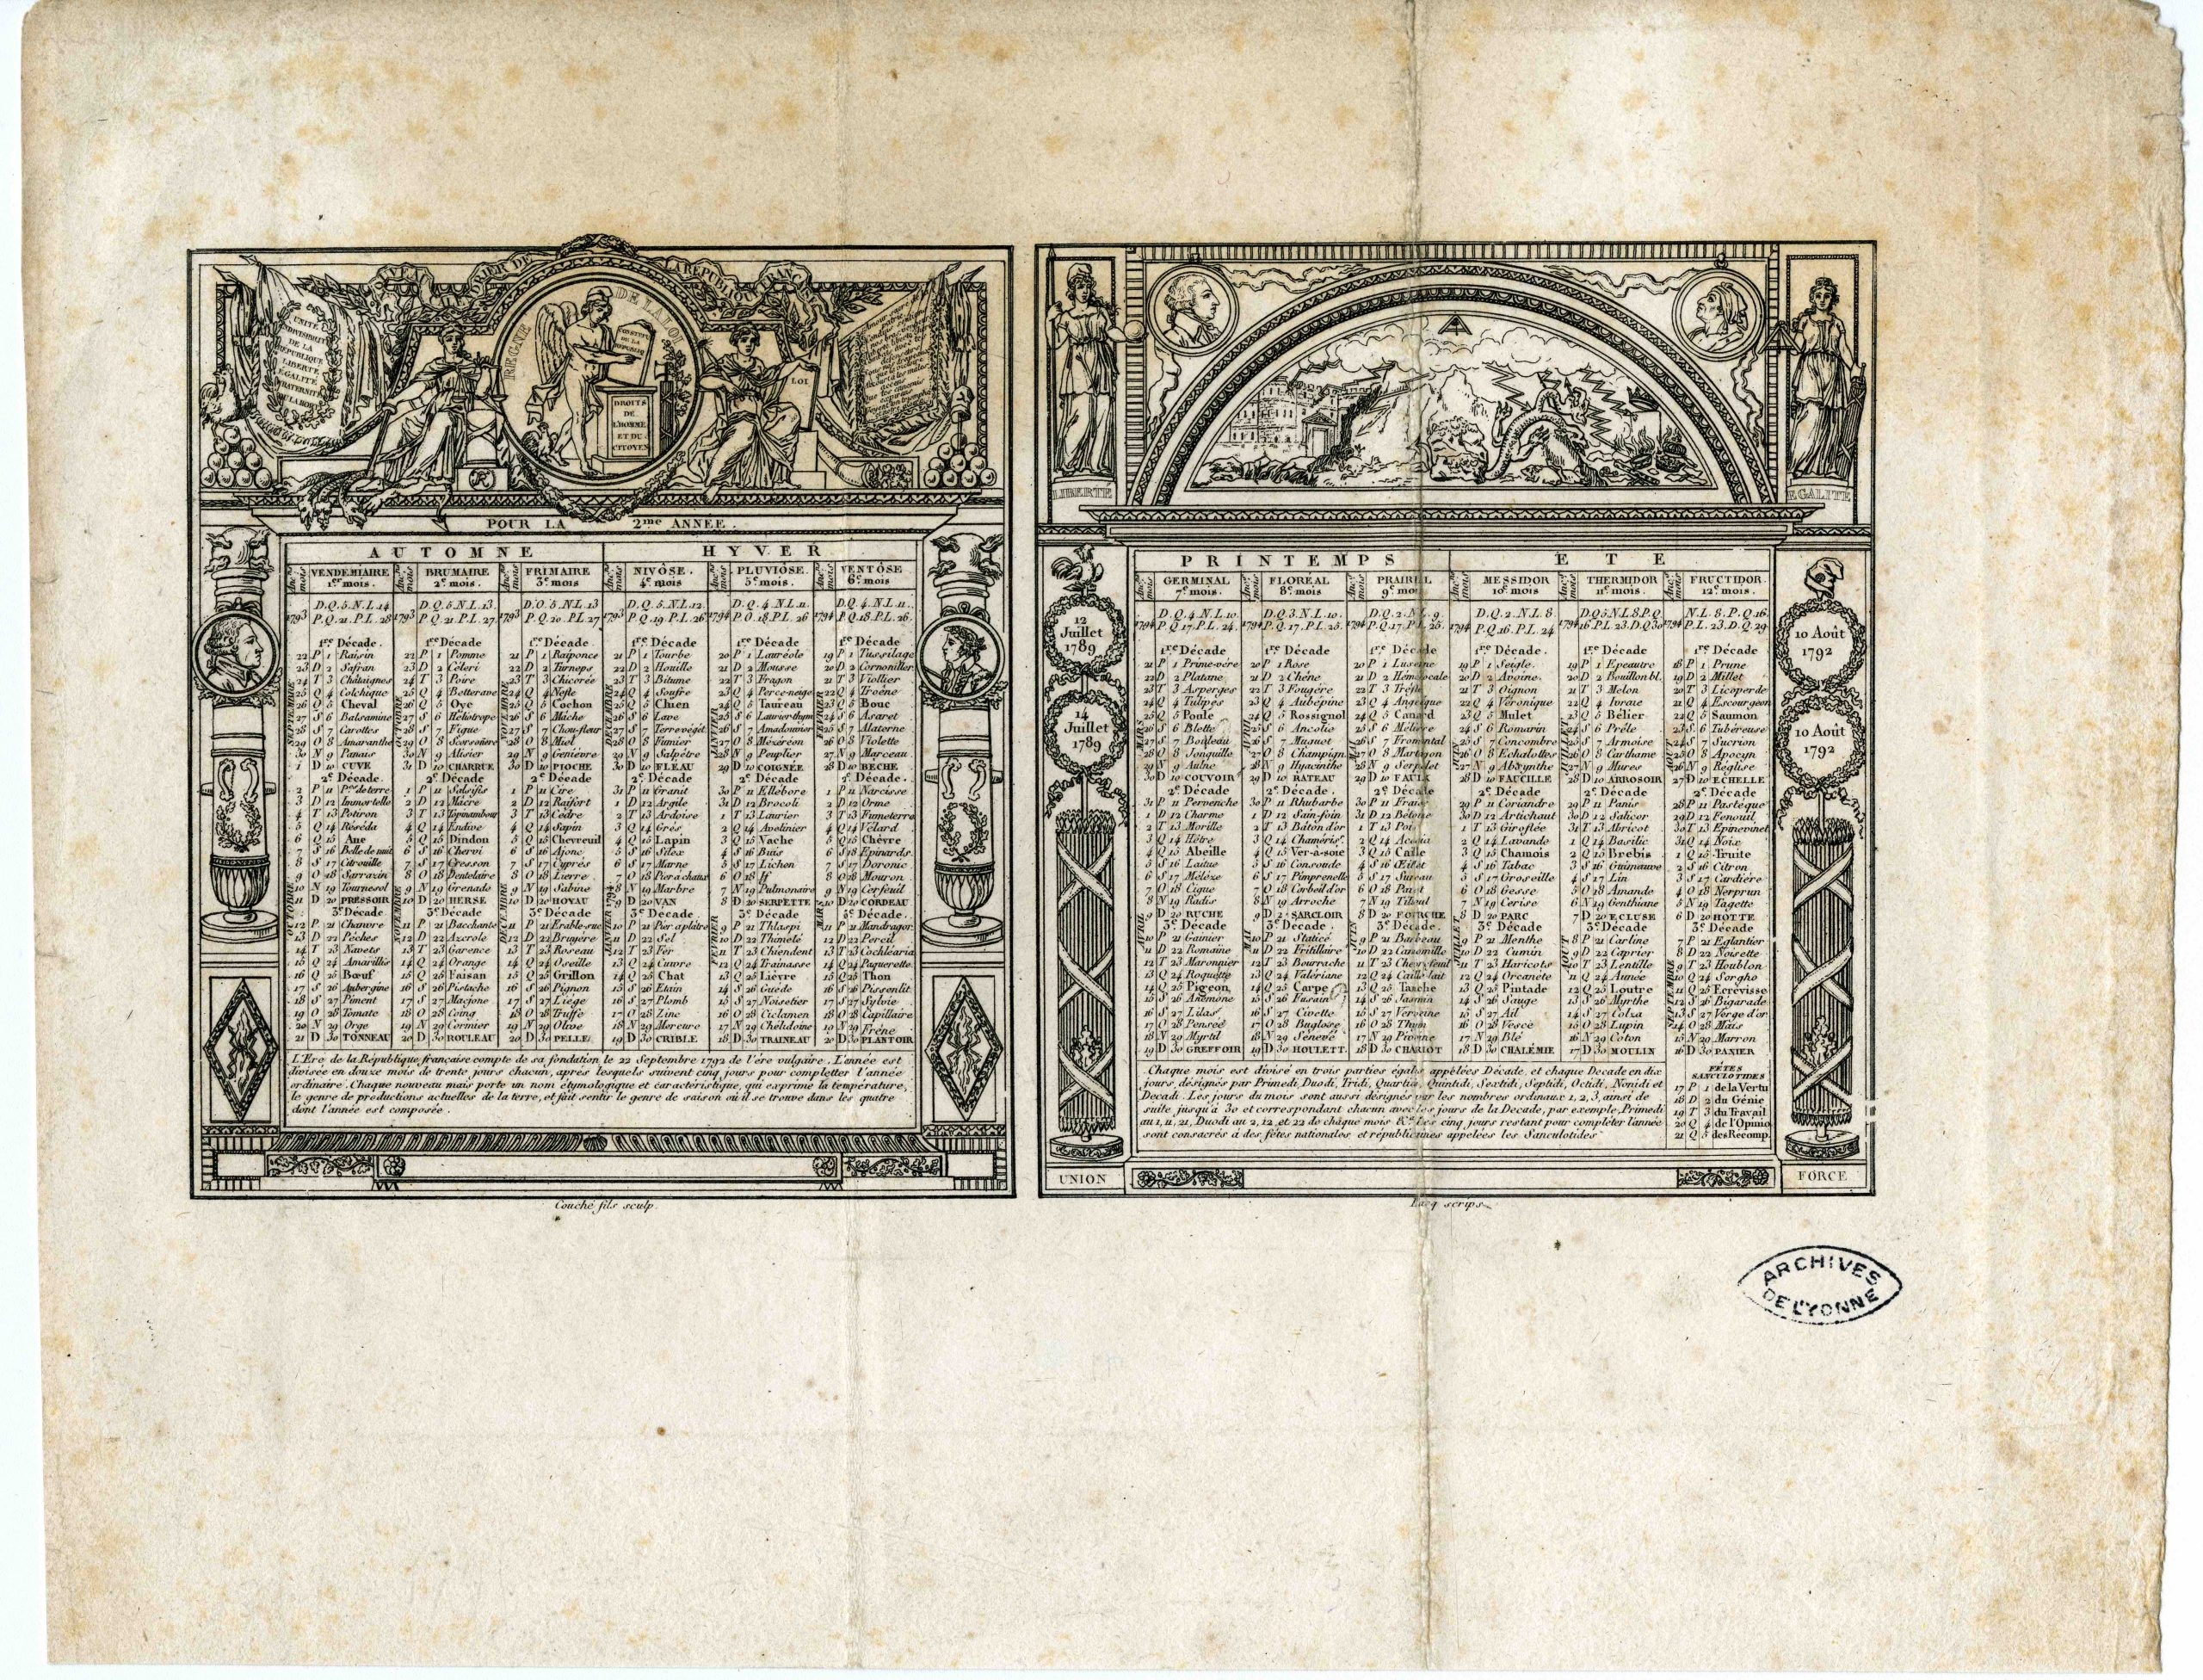 NOUVEAU CALENDRIER DE LA RÉPUBLIQUE FRANÇAISE
UNITÉ
INDIVISIBILITÉ
DE LA
RÉPUBLIQUE
LIBERTÉ
ÉGALITÉ
FRATERNITÉ
OU LA MORT
REGNE DE LA LOI
DROITS
DE
L'HOMME
ET DU
CITOYEN
LOI
POUR LA 2me ANNÉE.
AUTOMNE HYVER
VENDEMIAIRE BRUMAIRE FRIMAIRE NIVÔSE. PLUVIÔSE. VENTÔSE
1er mois. 2e mois. 3e mois 4e mois 5e mois 6e mois
D.Q. 5. N.L. 14 D.Q. 5. N.L. 13. D.Q. 5. N.L. 13 D.Q. 5. N.L. 12. D.Q. 4. N.L. 11. D.Q. 4. N.L. 11.
1793 P.Q. 21. P.L. 28 1793 P.Q. 21 P.L. 27 1793 P.Q. 20. P.L. 27 1793 P.Q. 19. P.L. 26 1794 P.Q. 18. P.L. 26 1794 P.Q. 18. P.L. 26.
1re Décade. 1re Décade 1re Décade 1re Décade 1re Décade 1re Décade
22 P 1 Raisin 22 P 1 Pomme 21 P 1 Raiponce 21 P 1 Tourbe 20 P 1 Lauréole 19 P 1 Tussilage
23 D 2 Safran 23 D 2 Céleri 22 D 2 Turneps 22 D 2 Houille 21 D 2 Mousse 20 D 2 Cornouiller
24 T 3 Châtaignes 24 T 3 Poire 23 T 3 Chicorée 23 T 3 Bitume 22 T 3 Fragon 21 T 3 Viollier
25 Q 4 Colchique 25 Q 4 Betterave 24 Q 4 Nefle 24 Q 4 Soufre 23 Q 4 Perce-neige 22 Q 4 Troêne
26 Q 5 Cheval 26 Q 5 Oye 25 Q 5 Cochon 25 Q 5 Chien 24 Q 5 Taureau 23 Q 5 Bouc
27 S 6 Balsamine 27 S 6 Héliotrope 26 S 6 Mâche 26 S 6 Lave 25 S 6 Laurier thym 24 S 6 Asaret
28 S 7 Carottes 28 S 7 Figue 27 S 7 Chou-fleur 27 S 7 Terre végét. 26 S 7 Amadouvier 25 S 7 Alaterne
29 O 8 Amaranthe 29 O 8 Scorsonère 28 O 8 Miel 28 O 8 Fumier 27 O 8 Mézéréon 26 O 8 Violette
30 N 9 Panais 30 N 9 Alisier 29 N 9 Genièvre 29 N 9 Salpêtre 28 N 9 Peuplier 27 N 9 Marceau
1 D 10 CUVE 31 D 10 CHARRUE 30 D 10 PIOCHE 30 D 10 FLÉAU 29 D 10 COIGNÉE 28 D 10 BECHE
2e Décade. 2e Décade 2e Décade 2e Décade 2e Décade 2e Décade.
2 P 11 Pme de terre 1 P 11 Salsifis 1 P 11 Cire 31 P 11 Granit 30 P 11 Ellébore 1 P 11 Narcisse
3 D 12 Immortelle 2 D 12 Mâcre 2 D 12 Raifort 1 D 12 Argile 31 D 12 Brocoli 2 D 12 Orme
4 T 13 Potiron 3 T 13 Topinambour 3 T 13 Cèdre 2 T 13 Ardoise 1 T 13 Laurier 3 T 13 Fumeterre
5 Q 14 Réséda 4 Q 14 Endive 4 Q 14 Sapin 3 Q 14 Grès 2 Q 14 Avelinier 4 Q 14 Vélard
6 Q 15 Ane 5 Q 15 Dindon 5 Q 15 Chevreuil 4 Q 15 Lapin 3 Q 15 Vache 5 Q 15 Chèvre
7 S 16 Belle de nuit 6 S 16 Chervi 6 S 16 Ajonc 5 S 16 Silex 4 S 16 Buis 6 S 16 Epinards
8 S 17 Citrouille 7 S 17 Cresson 7 S 17 Cyprès 6 S 17 Marne 5 S 17 Lichen 7 S 17 Doronic
9 O 18 Sarrazin 8 O 18 Dentelaire 8 O 18 Lierre 7 O 18 Pier. à chaux 6 O 18 If 8 O 18 Mouron
10 N 19 Tournesol 9 N 19 Grenade 9 N 19 Sabine 8 N 19 Marbre 7 N 19 Pulmonaire 9 N 19 Cerfeuil
11 D 20 PRESSOIR 10 D 20 HERSE 10 D 20 HOYAU 9 D 20 VAN 8 D 20 SERPETTE 10 D 20 CORDEAU
3e Décade 3e Décade 3e Décade 3e Décade 3e Décade 3e Décade.
12 P 21 Chanvre 11 P 21 Bacchante 11 P 21 Erable-suc. 10 P 21 Pier. a plâtre 9 P 21 Thlaspi 11 P 21 Mandragor.
13 D 22 Pêches 12 D 22 Azerole 12 D 22 Bruyère 11 D 22 Sel 10 D 22 Thimelé 12 D 22 Percil
14 T 23 Navets 13 T 23 Garence 13 T 23 Roseau 12 T 23 Fer 11 T 23 Chiendent 13 T 23 Cochléaria
15 Q 24 Amarillis 14 Q 24 Orange 14 Q 24 Oseille 13 Q 24 Cuivre 12 Q 24 Trainasse 14 Q 24 Paquerette
16 Q 25 Bœuf 15 Q 25 Faisan 15 Q 25 Grillon 14 Q 25 Chat 13 Q 25 Lièvre 15 Q 25 Thon
17 S 26 Aubergine 16 S 26 Pistache 16 S 26 Pignon 15 S 26 Etain 14 S 26 Guède 16 S 26 Pissenlit
18 S 27 Piment 17 S 27 Macjonc 17 S 27 Liège 16 S 27 Plomb 15 S 27 Noisetier 17 S 27 Sylvie
19 O 28 Tomate 18 O 28 Coing 18 O 28 Truffe 17 O 28 Zinc 16 O 28 Ciclamen 18 O 28 Capillaire
20 N 29 Orge 19 N 29 Cormier 19 N 29 Olive 18 N 29 Mercure 17 N 29 Chélidoine 19 N 29 Frêne
21 D 30 TONNEAU 20 D 30 ROULEAU 20 D 30 PELLE 19 D 30 CRIBLE 18 D 30 TRAINEAU 20 D 30 PLANTOIR
L'Ere de la République française compte de sa fondation le 22 Septembre 1792 de l'ère vulgaire. L'année est
divisée en douze mois de trente jours chacun, après lesquels suivent cinq jours pour completter l'année
ordinaire. Chaque nouveau mais porte un nom étymologique et caractéristique, qui exprime la température,
le genre de productions actuelles de la terre, et fait sentir le genre de saison où il se trouve dans les quatre
dont l'année est composée.
Couché fils sculp.
LIBERTÉ
EGALITÉ
12
Juillet
1789
14
Juillet
1789
10 Août
1792
10 Août
1792
PRINTEMPS ÉTÉ
GERMINAL FLORÉAL PRAIRIAL MESSIDOR THERMIDOR FRUCTIDOR.
7e mois. 8e mois. 9e mois 10e mois 11e mois 12e mois.
D.Q. 4. N.L. 10. D.Q. 3. N.L. 10. D.Q. 2. N.L. 9. D.Q. 2. N.L. 8 D.Q. 5 N.L. 8. P.Q N.L. 8. P.Q. 16.
1794 P.Q. 17. P.L. 24. 1794 P.Q. 17. P.L. 25. 1794 P.Q. 17. P.L. 25. 1794 P.Q. 16. P.L. 24 1794 16. P.L. 23. D.Q. 30 1794 P.L. 23. D.Q. 29
1re Décade 1re Décade 1re Décade 1re Décade. 1re Décade 1re Décade
21 P 1 Prime-vére 20 P 1 Rose 20 P 1 Luserne 19 P 1 Seigle. 19 P 1 Epeautre 18 P 1 Prune
22 D 2 Platane 21 D 2 Chêne 21 D 2 Hémérocale 20 D 2 Avoine. 20 D 2 Bouillon bl. 19 D 2 Millet
23 T 3 Asperges 22 T 3 Fougère 22 T 3 Tréfle 21 T 3 Oignon 21 T 3 Melon 20 T 3 Licoperde
24 Q 4 Tulipes 23 Q 4 Aubépine 23 Q 4 Angélique 22 Q 4 Véronique 22 Q 4 Ivraie 21 Q 4 Escourgeon
25 Q 5 Poule 24 Q 5 Rossignol 24 Q 5 Canard 23 Q 5 Mulet 23 Q 5 Bélier 22 Q 5 Saumon
26 S 6 Blette 25 S 6 Ancolie 25 S 6 Mélisse 24 S 6 Romarin 24 S 6 Prêle 23 S 6 Tubéreuse
27 S 7 Bouleau 26 S 7 Muguet 26 S 7 Fromental 25 S 7 Concombre 25 S 7 Armoise 24 S 7 Sucrion
28 O 8 Jonquille 27 O 8 Champign 27 O 8 Martagon 26 O 8 Echalottes 26 O 8 Carthame 25 O 8 Apocyn
29 N 9 Aulne 28 N 9 Hyacinthe 28 N 9 Serpolet 27 N 9 Absynthe 27 N 9 Mures 26 N 9 Réglise
30 D 10 COUVOIR 29 D 10 RATEAU 29 D 10 FAULX 28 D 10 FAUCILLE 28 D 10 ARROSOIR 27 D 10 ECHELLE
2e Décade 2e Décade. 2e Décade 2e Décade 2e Décade 2e Décade
31 P 11 Pervenche 30 P 11 Rhubarbe 30 P 11 Fraise 29 P 11 Coriandre 29 P 11 Panis 28 P 11 Pastèque
1 D 12 Charme 1 D 12 Sain-foin 31 D 12 Bétoine 30 D 12 Artichaut 30 D 12 Salicor 29 D 12 Fenouil
2 T 13 Morille 2 T 13 Bâton d'or 1 T 13 Pois 1 T 13 Giroflée 31 T 13 Abricot 30 T 13 Epinevinet
3 Q 14 Hêtre 3 Q 14 Chaméris. 2 Q 14 Acacia 2 Q 14 Lavande 1 Q 14 Basilic 31 Q 14 Noix
4 Q 15 Abeille 4 Q 15 Ver-à-soie 3 Q 15 Caille 3 Q 15 Chamois 2 Q 15 Brebis 1 Q 15 Truite
5 S 16 Laitue 5 S 16 Consoude 4 S 16 Œillet 4 S 16 Tabac 3 S 16 Guimauve 2 S 16 Citron
6 S 17 Mélèze 6 S 17 Pimprenelle 5 S 17 Sureau 5 S 17 Groseille 4 S 17 Lin 3 S 17 Cardière
7 O 18 Cigue 7 O 18 Corbeil d'or 6 O 18 Pavot 6 O 18 Gesse 5 O 18 Amande 4 O 18 Nerprun
8 N 19 Radis 8 N 19 Arroche 7 N 19 Tilleul 7 N 19 Cerise 6 N 19 Genthiane 5 N 19 Tagette
9 D 20 RUCHE 9 D 20 SARCLOIR 8 D 20 FOURCHE 8 D 20 PARC 7 D 20 ECLUSE 6 D 20 HOTTE
3e Décade 3e Décade 3e Décade. 3e Décade. 3e Décade. 3e Décade
10 P 21 Gainier 10 P 21 Staticé 9 P 21 Barbeau 9 P 21 Menthe 8 P 21 Carline 7 P 21 Eglantier
11 D 22 Romaine 11 D 22 Fritillaire 10 D 22 Camomille 10 D 22 Cumin 9 D 22 Caprier 8 D 22 Noisette
12 T 23 Maronnier 12 T 23 Bourache 11 T 23 Chevrefeuil 11 T 23 Haricots 10 T 23 Lentille 9 T 23 Houblon
13 Q 24 Roquette 13 Q 24 Valériane 12 Q 24 Caille lait 12 Q 24 Orcanète 11 Q 24 Aunée 10 Q 24 Sorgho
14 Q 25 Pigeon 14 Q 25 Carpe 13 Q 25 Tanche 13 Q 25 Pintade 12 Q 25 Loutre 11 Q 25 Ecrévisse
15 S 26 Anémone 15 S 26 Fusain 14 S 26 Jasmin 14 S 26 Sauge 13 S 26 Myrthe 12 S 26 Bigarade
16 S 27 Lilas 16 S 27 Civette 15 S 27 Verveine 15 S 27 Ail 14 S 27 Colza 13 S 27 Verge d'or
17 O 28 Pensée 17 O 28 Buglose 16 O 28 Thym 16 O 28 Vesce 15 O 28 Lupin 14 O 28 Maïs
18 N 29 Myrtil 18 N 29 Sénevé 17 N 29 Pivoine 17 N 29 Blé 16 N 29 Coton 15 N 29 Marron
19 D 30 GREFFOIR 19 D 30 HOULETT. 18 D 30 CHARIOT 18 D 30 CHALÉMIE 17 D 30 MOULIN 16 D 30 PANIER
Chaque mois est divisé en trois parties égales appelées Décade, et chaque Decade en dix
jours, désignés par Primedi, Duodi, Tridi, Quartidi, Quintidi, Sextidi, Septidi, Octidi, Nonidi et
Decadi. Les jours du mois sont aussi désignés par les nombres ordinaux 1, 2, 3, ainsi de
suite jusqu'à 30 et correspondant chacun avec les jours de la Decade, par exemple, Primedi
au 1, 11, 21, Duodi au 2, 12 et 22 de châque mois &c. Les cinq jours restant pour compléter l'année
sont consacrés à des fêtes nationales et républicaines appelées les Sanculotides
FÊTES
SANCULOTIDES
17 P 1 de la Vertu
18 D 2 du Génie
19 T 3 du Travail
20 Q 4 de l'Opinio
21 Q 5 des Recomp.
UNION
FORCE
scrips
ARCHIVES
DE L'YONNE